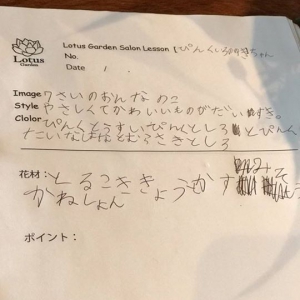 Lotus
Garden
Lotus Garden Salon Lesson【ぴんくいろ】ゆきちゃん
No.
Date /
Image 7さいのおんなのこ
Style やさしくてかわいいものがだいすき。
Clolor ぴんくとうすいぴんくとしろとぴんく
むらさきとしろ
花材: とるこききょう かす みそ
かねしょん
ポイント: